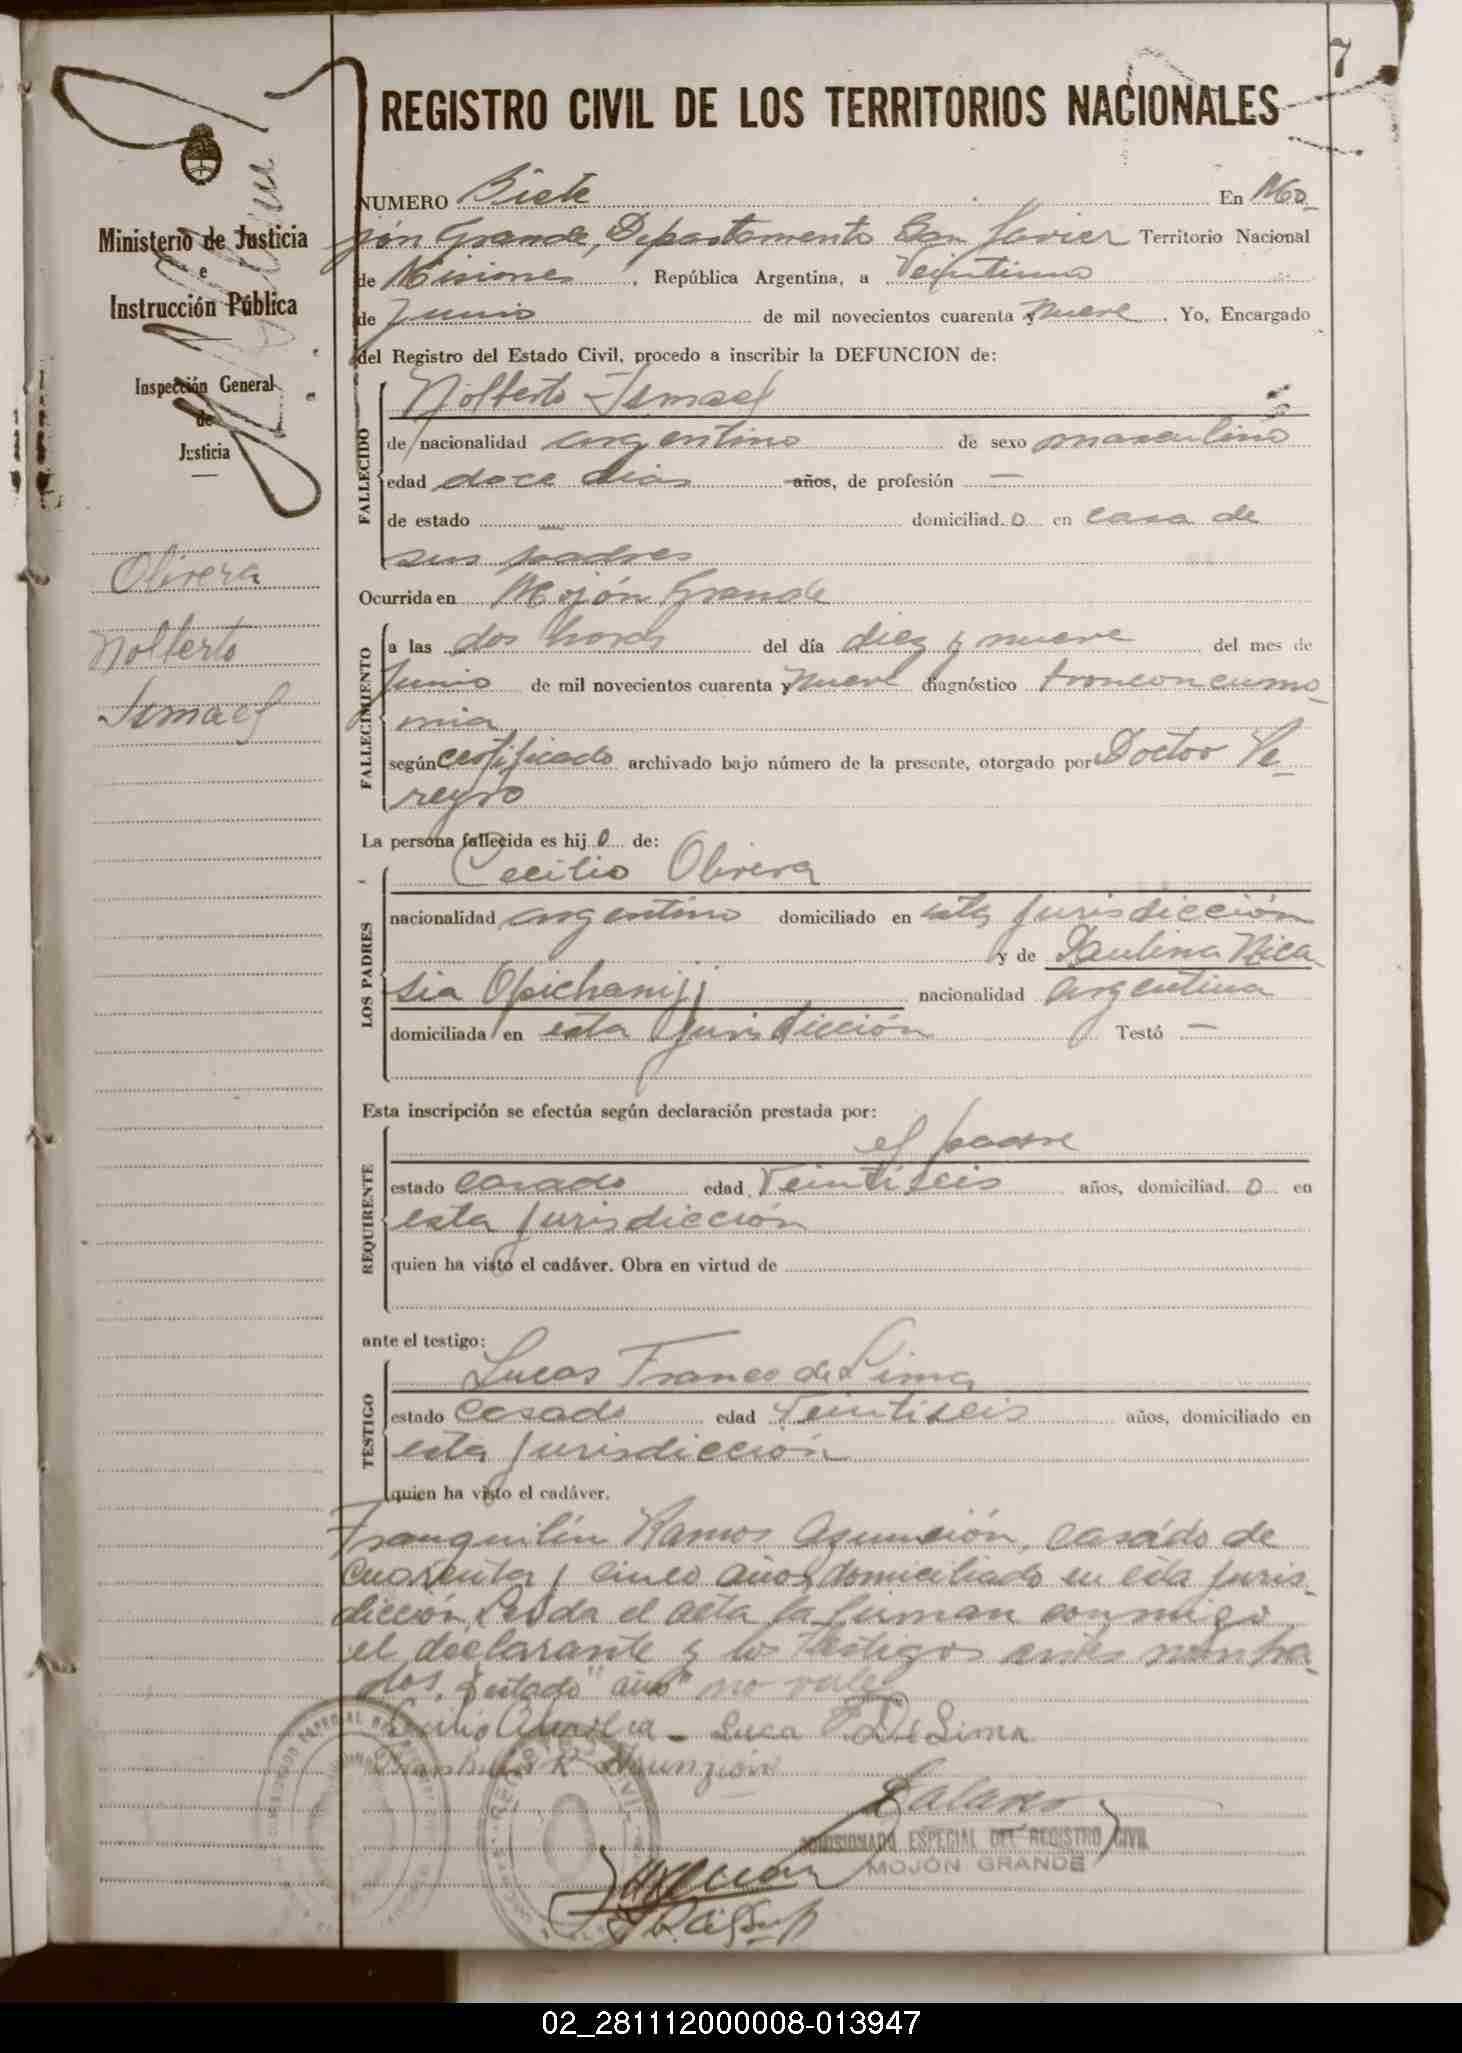 7
REGISTRO CIVIL DE LOS TERRITORIOS NACIONALES
Ministerio de Justicia
e
Instrucción Pública
Inspección General
de
Justicia
Olivera
Nolberto
Ismael
NUMERO Siete En Mo-
jón Grande, Departamento San Javier Territorio Nacional
de Misiones, República Argentina, a Veintiuno
de Junio de mil novecientos cuarenta y nueve. Yo, Encargado
del Registro del Estado Civil, procedo a inscribir la DEFUNCION de:
FALLECIDO
Nolberto Ismael
de nacionalidad argentino de sexo masculino
edad doce dias años, de profesión —
de estado — domiciliad.o en casa de
sus padres
Ocurrida en Mojón Grande
FALLECIMIENTO
a las dos horas del día diez y nueve del mes de
Junio de mil novecientos cuarenta y nueve diagnóstico bronconeumo-
nia
según certificado archivado bajo número de la presente, otorgado por Doctor Pe-
reyro
La persona fallecida es hijo de:
LOS PADRES
Cecilio Olivera
nacionalidad argentino domiciliado en esta jurisdicción
y de Paulina Nica
sia Opichanij nacionalidad argentina
domiciliada en esta jurisdicción Testó —
Esta inscripción se efectúa según declaración prestada por:
REQUIRENTE
el padre
estado casado edad Veintiseis años, domiciliad.o en
esta jurisdicción
quien ha visto el cadáver. Obra en virtud de
ante el testigo:
TESTIGO
Lucas Franco de Lima
estado casado edad Veintiseis años, domiciliado en
esta jurisdicción
quien ha visto el cadáver.
Franquilín Ramos Asunción, casado de
cuarenta y cinco años domiciliado en esta juris-
dicción, Leída el acta la firman conmigo
el declarante y los testigos antes nombra-
dos. "años" no vale
Cecilio Olivera - Luca F De Lima
R Asunzión
COMISIONADO ESPECIAL DEL REGISTRO CIVIL
MOJÓN GRANDE
02_281112000008-013947